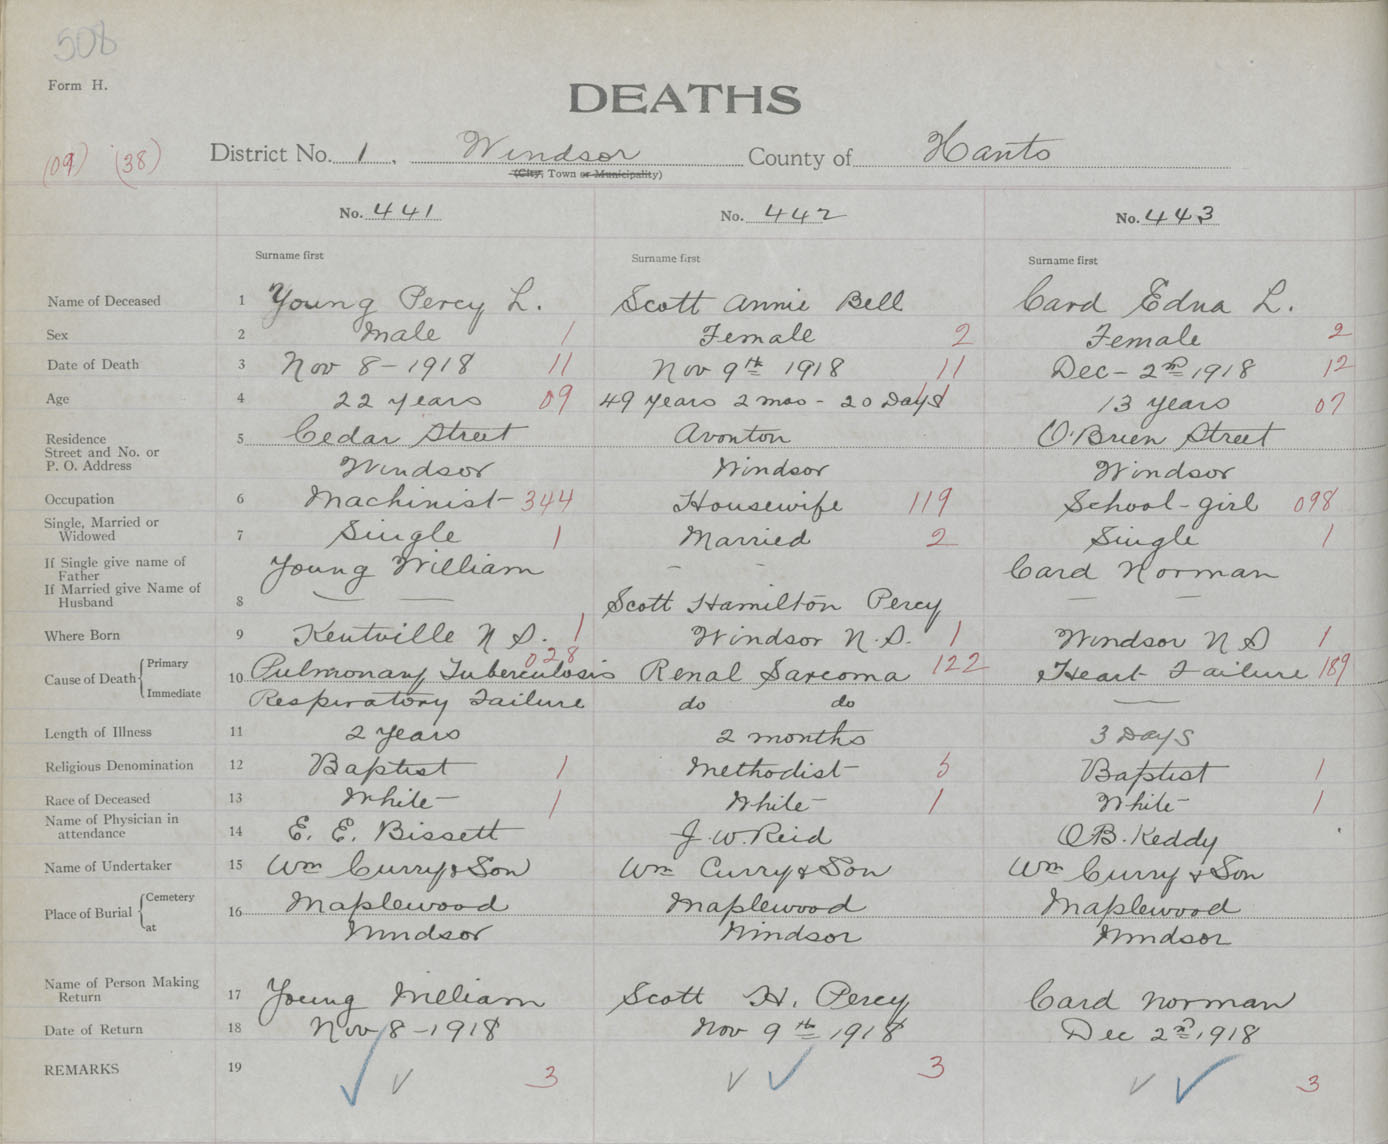 508
Form H.
DEATHS
(09) (38) District No. 1. Windsor County of Hants
(City, Town or Municipality)
No. 441 No. 442 No. 443
Surname first Surname first Surname first
Name of Deceased 1 Young Percy L. Scott Annie Bell Card Edna L.
Sex 2 Male 1 Female 2 Female 2
Date of Death 3 Nov 8-1918 11 Nov 9th 1918 11 Dec- 2nd 1918 12
Age 4 22 years 09 49 Years 2 mos - 20 Days 13 years 07
Residence 5 Cedar Street Avonton O'Brien Street
Street and No. or
P. O. Address Windsor Windsor Windsor
Occupation 6 Machinist 344 Housewife 119 School-girl 098
Single, Married or
Widowed 7 Single 1 Married 2 Single 1
If Single give name of
Father Young William - - Card Norman
If Married give Name of
Husband 8 — — Scott Hamilton Percy — —
Where Born 9 Kentville N S. 1 Windsor N.S. 1 Windsor N S 1
028
Cause of Death { Primary 10 Pulmonary Tuberculosis Renal Sarcoma 122 Heart Failure 189
Immediate Respiratory Failure do do —
Length of Illness 11 2 years 2 months 3 Days
Religious Denomination 12 Baptist 1 Methodist 5 Baptist 1
Race of Deceased 13 White 1 White 1 White 1
Name of Physician in
attendance 14 E. E. Bissett J. W. Reid O B. Keddy
Name of Undertaker 15 Wm Curry & Son Wm Curry & Son Wm Curry & Son
Place of Burial { Cemetery 16 Maplewood Maplewood Maplewood
at Windsor Windsor Windsor
Name of Person Making
Return 17 Young William Scott H. Percy Card Norman
Date of Return 18 Nov 8-1918 Nov 9th 1918 Dec 2nd 1918
REMARKS 19 3 3 3